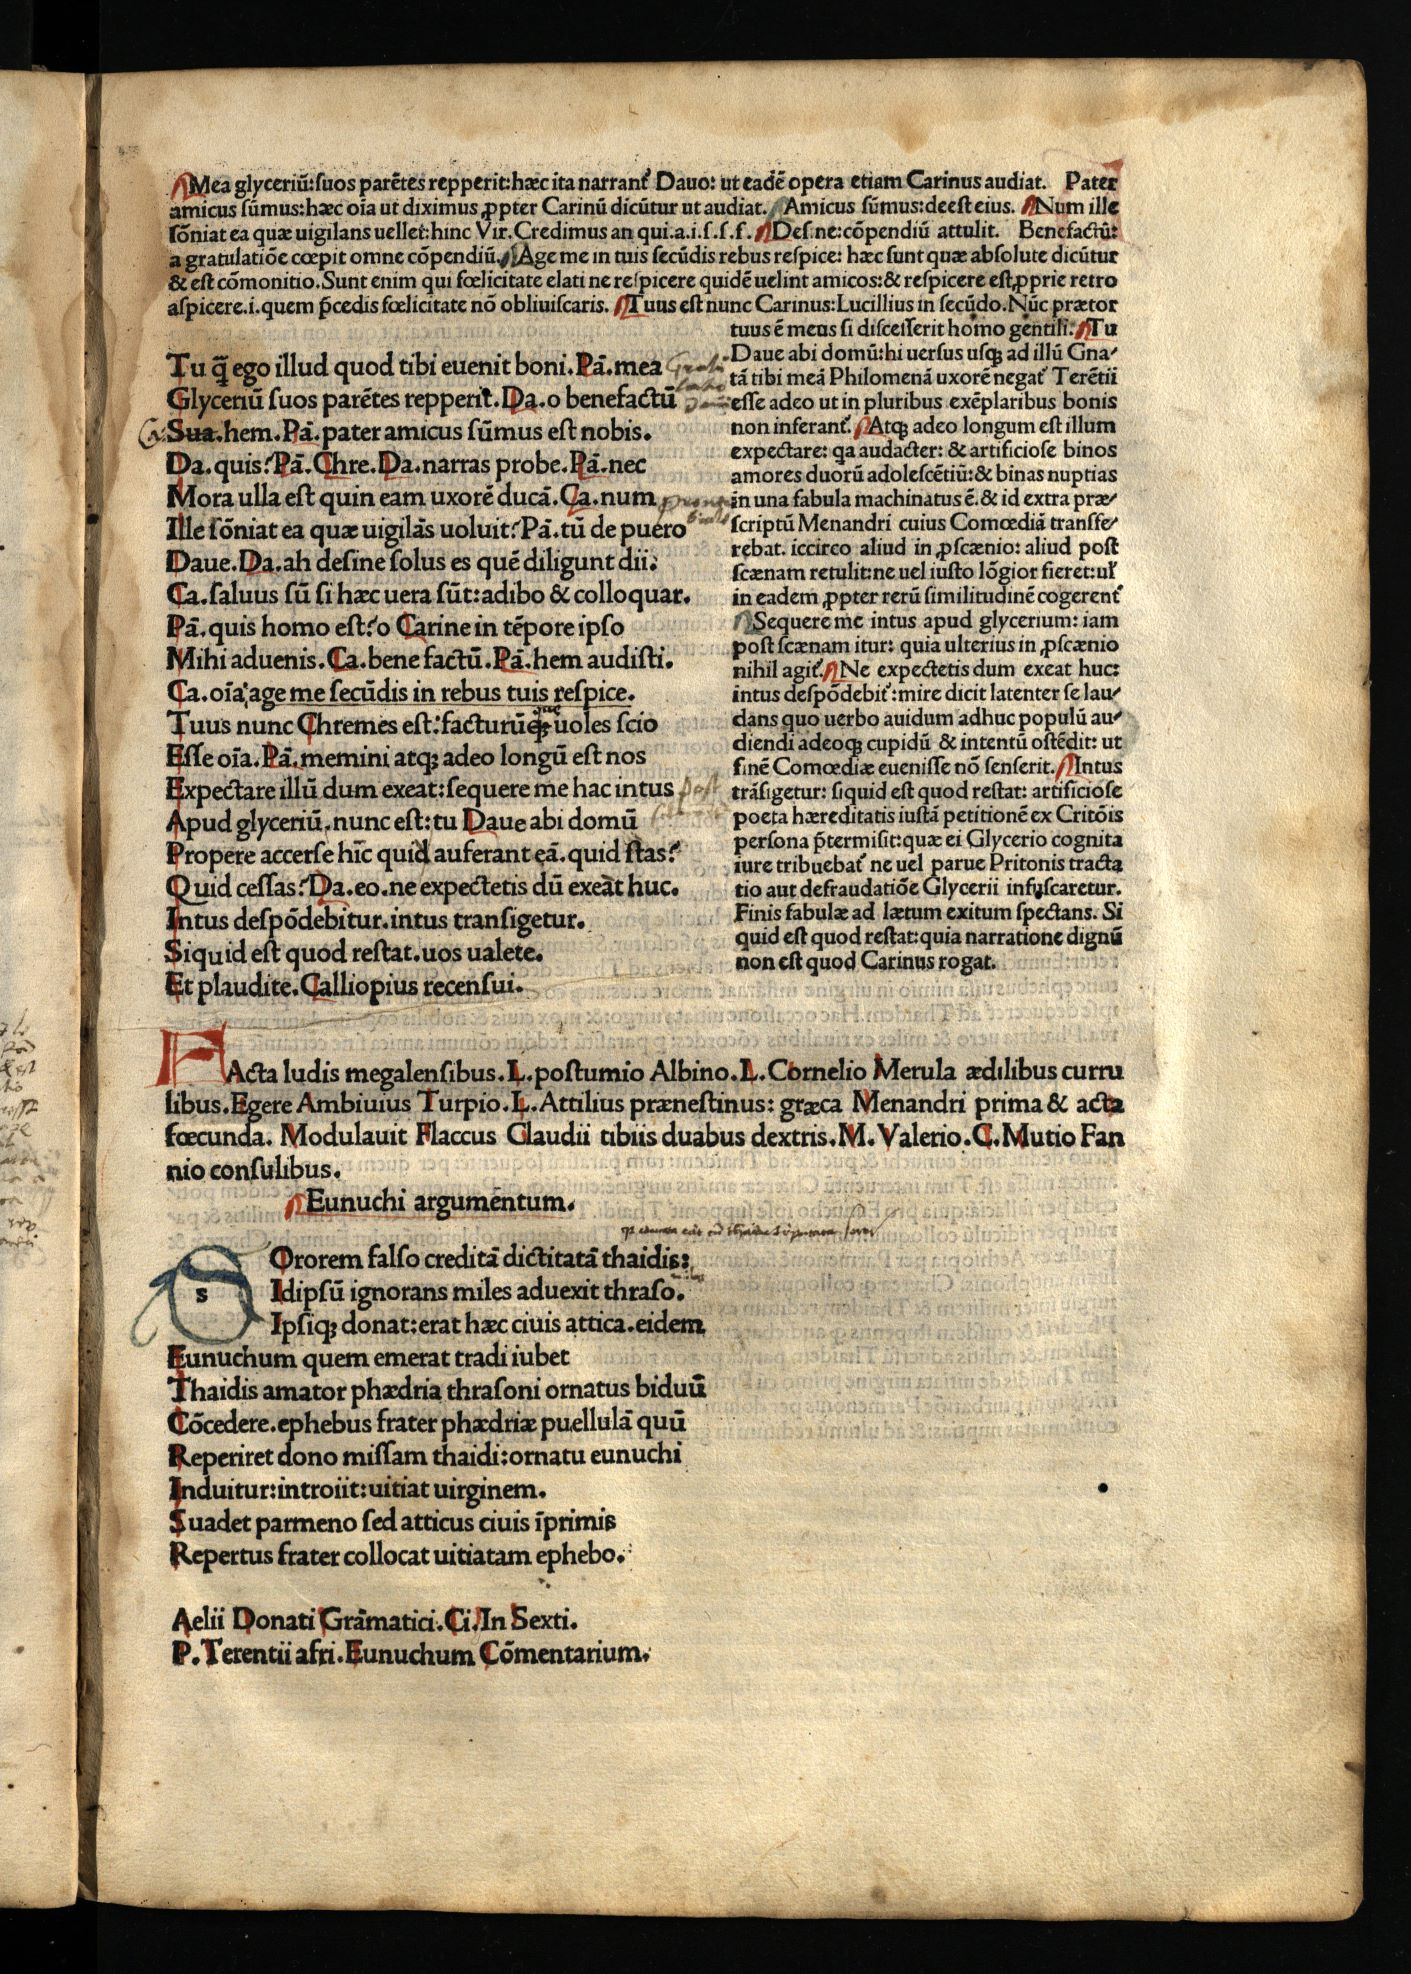 Mea glyceriū:suos parētes repperit:hæc ita narranť Dauo: ut eadē opera etiam Carinus audiat. Pater
amicus sūmus:hæc oīa ut diximus ꝓpter Carinū dicūtur ut audiat. Amicus sūmus:deest eius. Num ille
sōniat ea quæ uigilans uellet:hinc Vir.Credimus an qui.a.i.s.s.f. Desine:cōpendiū attulit. Benefactū:
a gratulatiōe cœpit omne cōpendiū. Age me in tuis secūdis rebus respice: hæc sunt quæ absolute dicūtur
& est cōmonitio.Sunt enim qui fœlicitate elati ne respicere quidē uelint amicos:& respicere est ꝓprie retro
aspicere.i.quem p̄cedis fœlicitate nō obliuiscaris. Tuus est nunc Carinus:Lucillius in secūdo.Nūc prætor
tuus ē meus si discesserit homo gentili: Tu
Daue abi domū:hi uersus usqꝫ ad illū Gna-
tā tibi meā Philomenā uxorē negať Terētii
esse adeo ut in pluribus exēplaribus bonis
non inferanť. Atqꝫ adeo longum est illum
expectare: qa audacter: & artificiose binos
amores duorū adolescētiū:& binas nuptias
in una fabula machinatus ē.& id extra præ-
scriptū Menandri cuius Comœdiā transfe-
rebat. iccirco aliud in ꝓscænio: aliud post
scænam retulit:ne uel iusto lōgior fieret:ul'
in eadem ꝓpter rerū similitudinē cogerenť
Sequere me intus apud glycerium: iam
post scænam itur: quia ulterius in ꝓscænio
nihil agiť. Ne expectetis dum exeat huc:
intus despōdebiť:mire dicit latenter se lau-
dans quo uerbo auidum adhuc populū au-
diendi adeoqꝫ cupidū & intentū ostēdit: ut
finē Comœdiæ euenisse nō senserit. Intus
trāsigetur: siquid est quod restat: artificiose
poeta hæreditatis iustā petitionē ex Critōis
persona p̄termisit:quæ ei Glycerio cognita
iure tribuebať ne uel parue Pritonis tracta
tio aut defraudatiōe Glycerii infuscaretur.
Finis fabulæ ad lætum exitum spectans. Si
quid est quod restat:quia narratione dignū
non est quod Carinus rogat.
Tu q̄ ego illud quod tibi euenit boni.Pā.mea
Glyceriū suos parētes repperit.Da.o benefactū
Sua.hem.Pā.pater amicus sūmus est nobis.
Da.quis?Pā.Chre.Da.narras probe.Pā.nec
Mora ulla est quin eam uxorē ducā.Ca.num
Ille sōniat ea quæ uigilās uoluit?Pā.tū de puero
Daue.Da.ah desine solus es quē diligunt dii:
Ca.saluus sū si hæc uera sūt:adibo & colloquar.
Pā.quis homo est?o Carine in tēpore ipso
Mihi aduenis.Ca.bene factū.Pā.hem audisti.
Ca.oīa:age me secūdis in rebus tuis respice.
Tuus nunc Chremes est:facturūqꝫ uoles scio
Esse oīa.Pā.memini atqꝫ adeo longū est nos
Expectare illū dum exeat:sequere me hac intus
Apud glyceriū.nunc est:tu Daue abi domū
Propere accerse hīc quid auferant eā.quid stas?
Quid cessas?Da.eo.ne expectetis dū exeat huc.
Intus despōdebitur.intus transigetur.
Siquid est quod restat.uos ualete.
Et plaudite.Calliopius recensui.
FActa ludis megalensibus.L.postumio Albino.L.Cornelio Merula ædilibus curru
libus.Egere Ambiuius Turpio.L.Attilius prænestinus: græca Menandri prima & acta
fœcunda. Modulauit Flaccus Claudii tibiis duabus dextris.M.Valerio.C.Mutio Fan
nio consulibus.
Eunuchi argumentum.
SOrorem falso creditā dictitatā thaidis:
Idipsū ignorans miles aduexit thraso.
Ipsiqꝫ donat:erat hæc ciuis attica.eidem
Eunuchum quem emerat tradi iubet
Thaidis amator phædria thrasoni ornatus biduū
Cōcedere.ephebus frater phædriæ puellulā quū
Reperiret dono missam thaidi:ornatu eunuchi
Induitur:introiit:uitiat uirginem.
Suadet parmeno sed atticus ciuis īprimis
Repertus frater collocat uitiatam ephebo.
Aelii Donati Grāmatici.Ci.In Sexti.
P.Terentii afri.Eunuchum Cōmentarium.